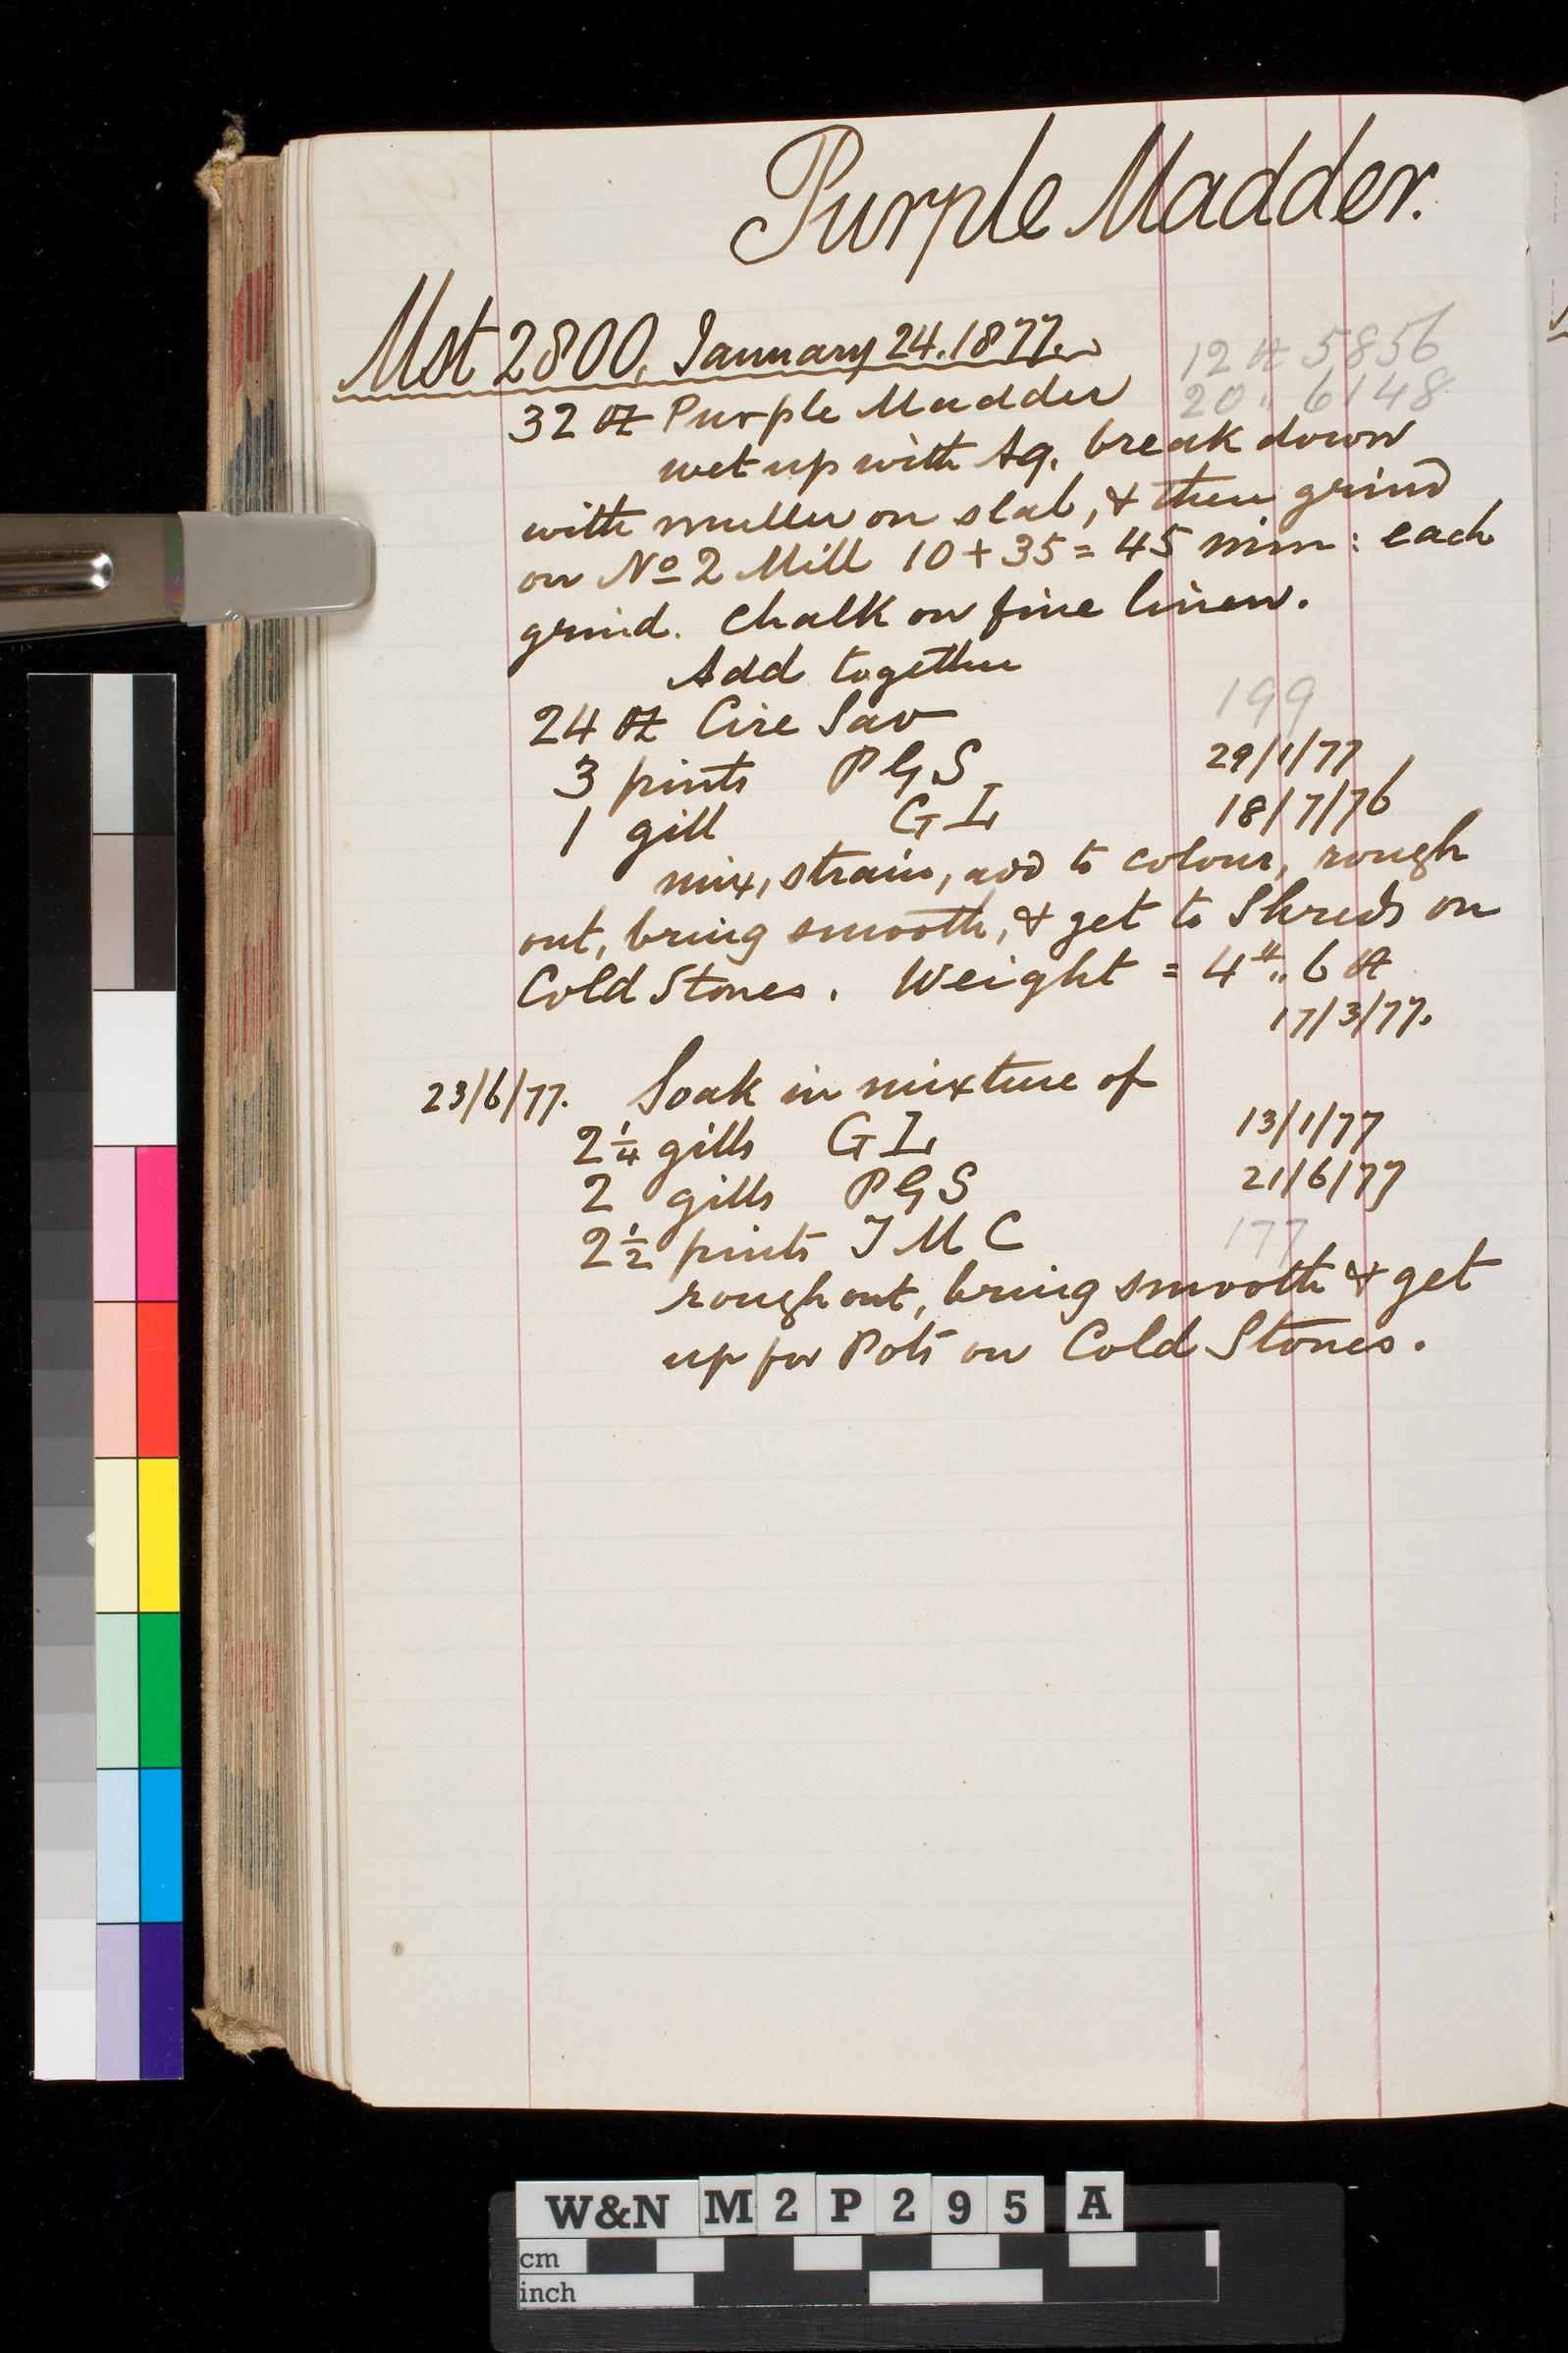 Purple Madder.
Mst 2800, January 24. 1877.
12 oz 5856
32 oz Purple Madder 20 " 6148
wet up with Aq. break down
with muller on slab, & then grind
on No 2 Mill 10 + 35 = 45 min: each
grind. Chalk on fine linen.
Add together
24 oz Cire Sav 199
3 pints PGS 29/1/77
1 gill GL 18/7/76
mix, strain, add to colour, rough
out, bring smooth, & get to Shreds on
Cold Stones. Weight = 4 lb " 6 oz
17/3/77.
23/6/77. Soak in mixture of
2 1/4 gills GL 13/1/77
2 gills PGS 21/6/77
2 1/2 pints JMC 177
rough out, bring smooth & get
up for Pots on Cold Stones.
W&N M 2 P 2 9 5 A
cm
inch